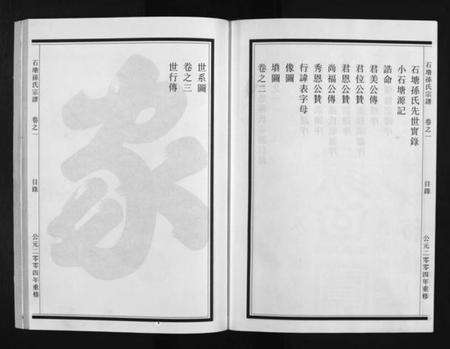 石塘孫氏宗譜 卷之一 目錄 公元二零零四年重修
石塘孫氏先世實錄
小石塘源記
誥命
君美公傳
君位公贊
君恩公贊
尚福公傳
秀恩公贊
行諱表字母
像圖
墳圖
卷之二
世系圖
卷之三
世行傳
家
石塘孫氏宗譜 卷之一 目錄 公元二零零四年重修